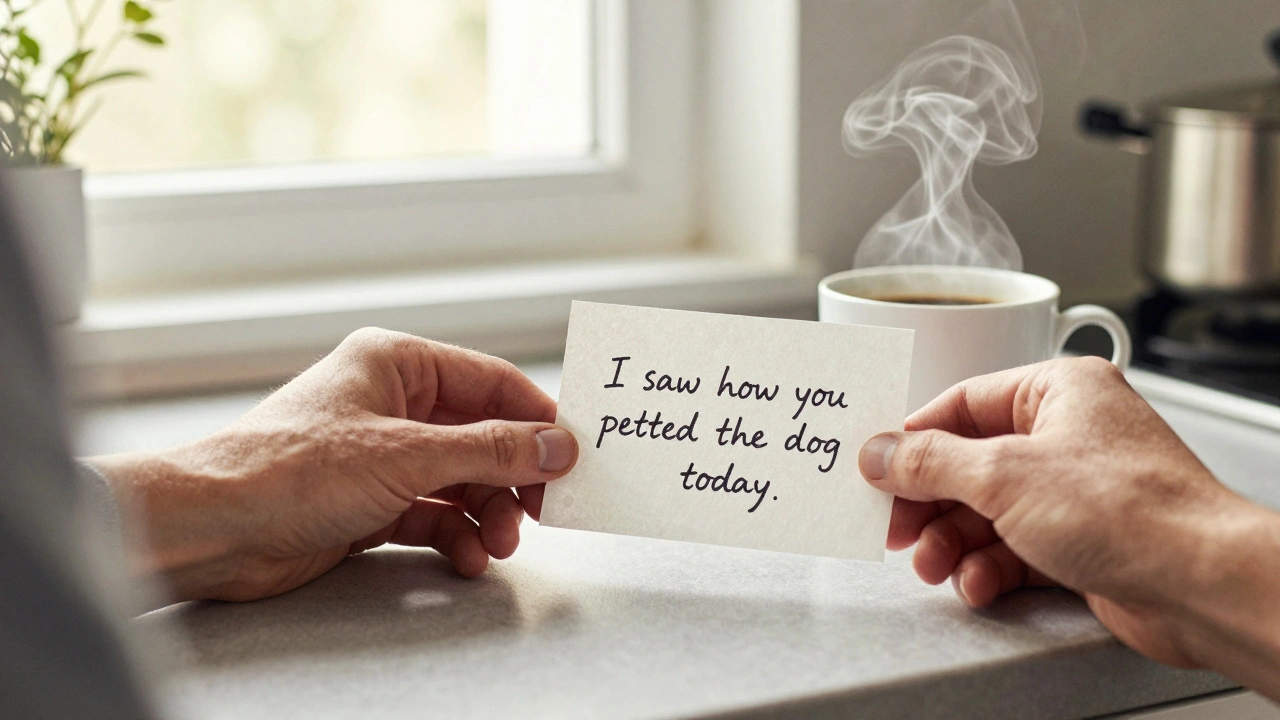 I saw how you
petted the dog
today.